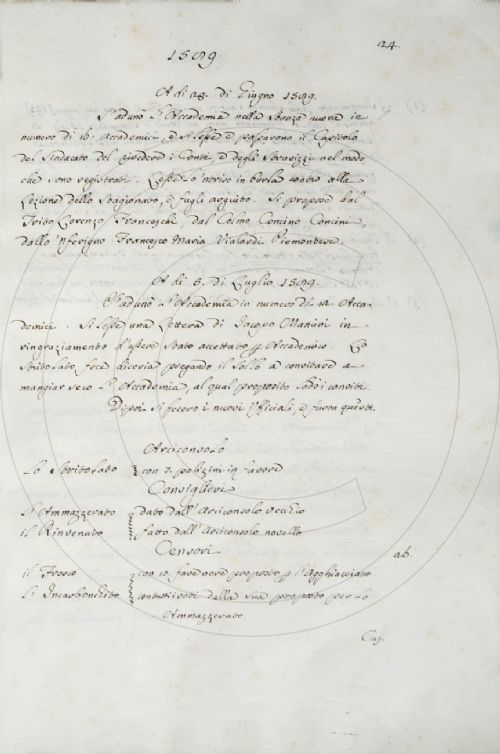 24.
1589.
A di 28. di Giugno 1589.
S'adunò l'Accademia nella Stanza nuova in
numero di 16. Accademici, e si lesse, e passarono il Capitolo
del Sindacato del rivedere i Conti, e degli Stravizzi nel modo
che sono registrati. Lesse lo 'ntriso in burla contro alla
Lezione dello Stagionato, e fugli arguito. Si propose dal
Trito Lorenzo Franceschi, dal Colmo Concino Concini,
dallo 'nferigno Francesco Maria Vialardi Piemontese.
A di 5. di Luglio 1589.
S'adunò l'Accademia in numero di 12. Acca-
demici. Si lesse una Lettera di Jacopo Mancini in
ringraziamento d'essere stato accettato p Accademico. Lo
Stritolato fece diceria pregando il Sollo a convitare a
mangiar seco l'Accademia, al qual proposito lodò i conviti.
Dipoi si fecero i nuovi Ufficiali, e furon questi.
Arciconsolo
Lo Stritolato con 7. polizini in favore
Consiglieri
L'Ammazzerato dato dall'Arciconsolo vecchio
il Rinvenuto fatto dall'Arciconsolo novello
Censori
ab.
il Fresco con 10. fave nere proposto p l'Agghiacciato
L'Incarbonchito con tutti voti dalla sua proposto per lo
Ammazzerato.